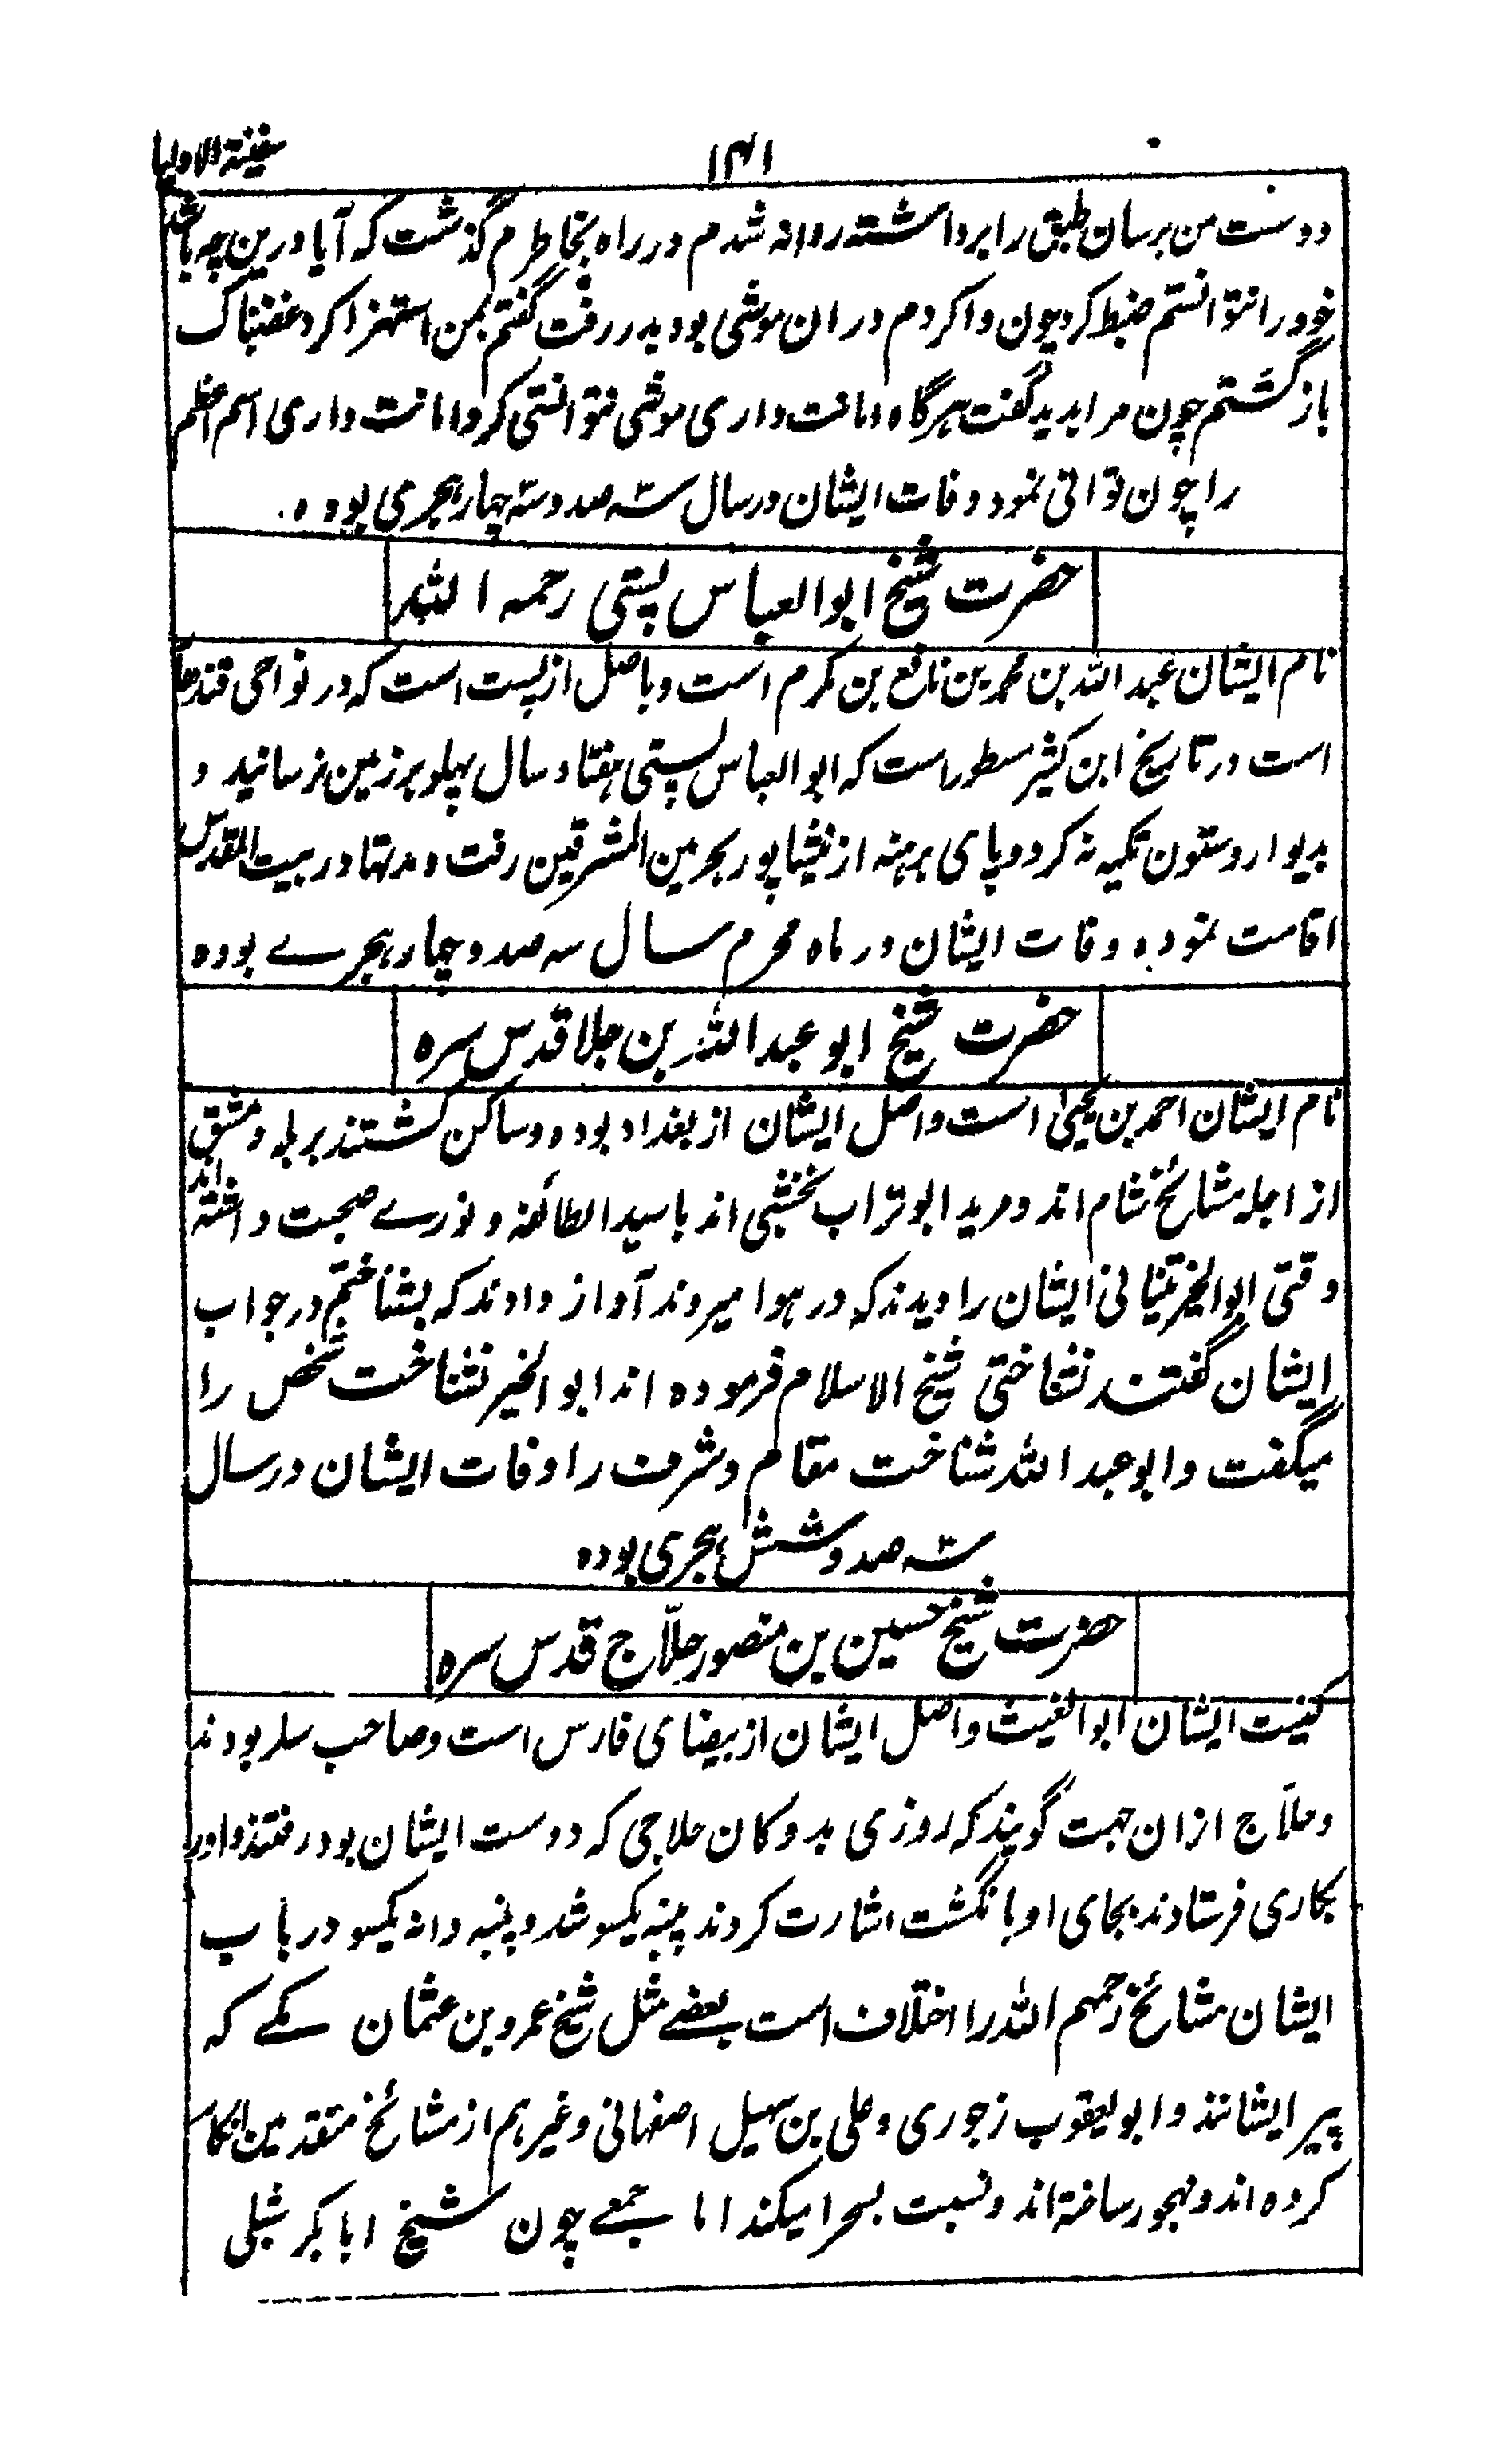 سفینة الاولیا
۱۴۱
دوست من برسان طبق را برداشته روانه شدم در راه بخاطرم گذشت که آیا درین چه باشد
خود را نتوانستم ضبط کرد چون وا کردم دران موشی بود بدر رفت گفتم بمن استهزا کرد غضبناک
باز گشتم چون مرا بدید گفت هرگاه امانت داری موشی نتوانستی کرد امانت داری اسم اعظم
را چون توانی نمود وفات ایشان در سال سه صد و سه چهار هجری بوده
حضرت شیخ ابو العباس پستی رحمه الله
نام ایشان عبد الله بن محمد بن نافع بن مکرم است و باصل از پست است که در نواحی قندها
است در تاریخ ابن کثیر مسطور است که ابو العباس پستی هفتاد سال پهلو بر زمین نرسانید و
بدیوار و ستون تکیه نه کرد و پای برهنه از نیشاپور بحرمین المشرقین رفت و مدتها در بیت المقدس
اقامت نموده وفات ایشان در ماه محرم سال سه صد و چهار هجرے بوده
حضرت شیخ ابو عبد الله بن جلا قدس سره
نام ایشان احمد بن یحییٰ است و اصل ایشان از بغداد بوده و ساکن گشتند برمله و دمشق
از اجله مشائخ شام اند و مرید ابو تراب نخشبی اند با سید الطائفه و نورے صحبت داشته اند
وقتی ابو الخیر تیناتی ایشان را دیدند که در هوا میروند آواز دادند که بشناختم در جواب
ایشان گفتند نشناختی شیخ الاسلام فرموده اند ابو الخیر نشناخت شخص را
میگفت و ابو عبد الله شناخت مقام و شرف را وفات ایشان در سال
سه صد و شش هجری بوده
حضرت شیخ حسین بن منصور حلّاج قدس سره
کنیت ایشان ابو الغیث و اصل ایشان از بیضای فارس است و صاحب سلر بودند
و حلّاج ازان جهت گویند که روزی بدوکان حلاجی که دوست ایشان بود رفتند و اورا
بکاری فرستادند بجای او بانگشت اشارت کردند پنبه یکسو شد و پنبه دانه یکسو در باب
ایشان مشائخ رحمهم الله را اختلاف است بعضے مثل شیخ عمرو بن عثمان مکے که
پیر ایشانند و ابو یعقوب نهرجوری و علی بن سهیل اصفهانی و غیرهم از مشائخ متقدمین انکار
کرده اند و مهجور ساخته اند و نسبت بسحر میکند اما جمعے چون شیخ ابا بکر شبلی